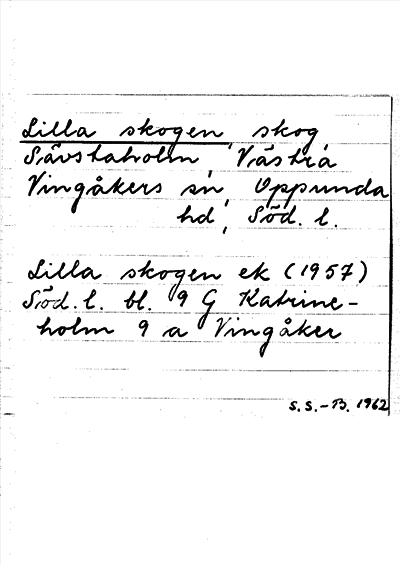 Lilla skogen, skog,
Sävstaholm, Västra
Vingåkers sn, Oppunda
hd, Söd. l.
Lilla skogen ek (1957)
Söd. l. bl. 9 G Katrine-
holm 9 a Vingåker
S. S.-B. 1962